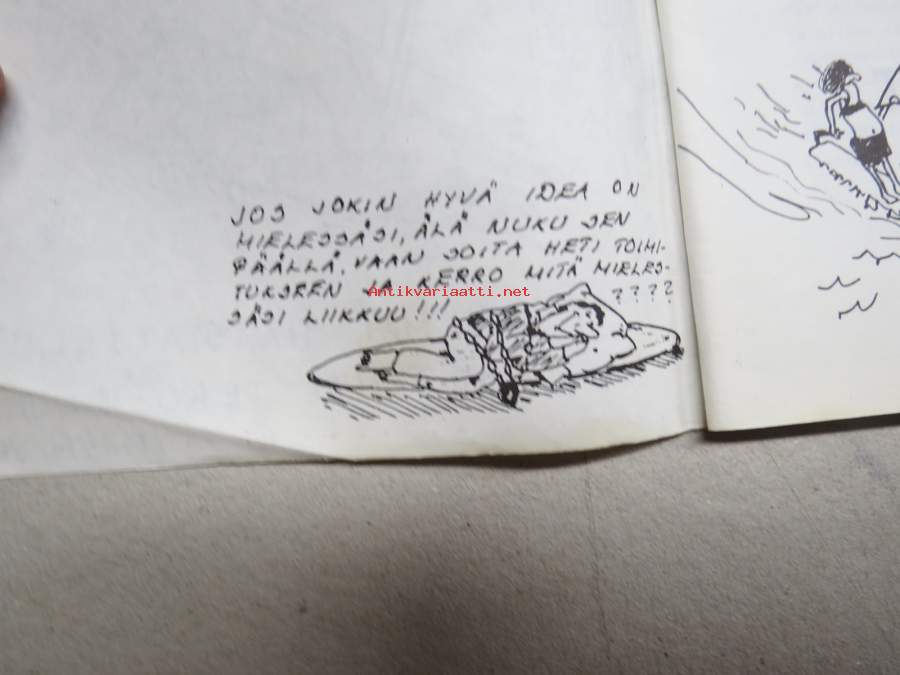 JOS JOKIN HYVÄ IDEA ON
MIELESSÄSI, ÄLÄ NUKU SEN
PÄÄLLÄ, VAAN SOITA HETI TOIMI-
TUKSEEN JA KERRO MITÄ MIELES-
SÄSI LIIKKUU!!! ????
Antikvariaatti.net